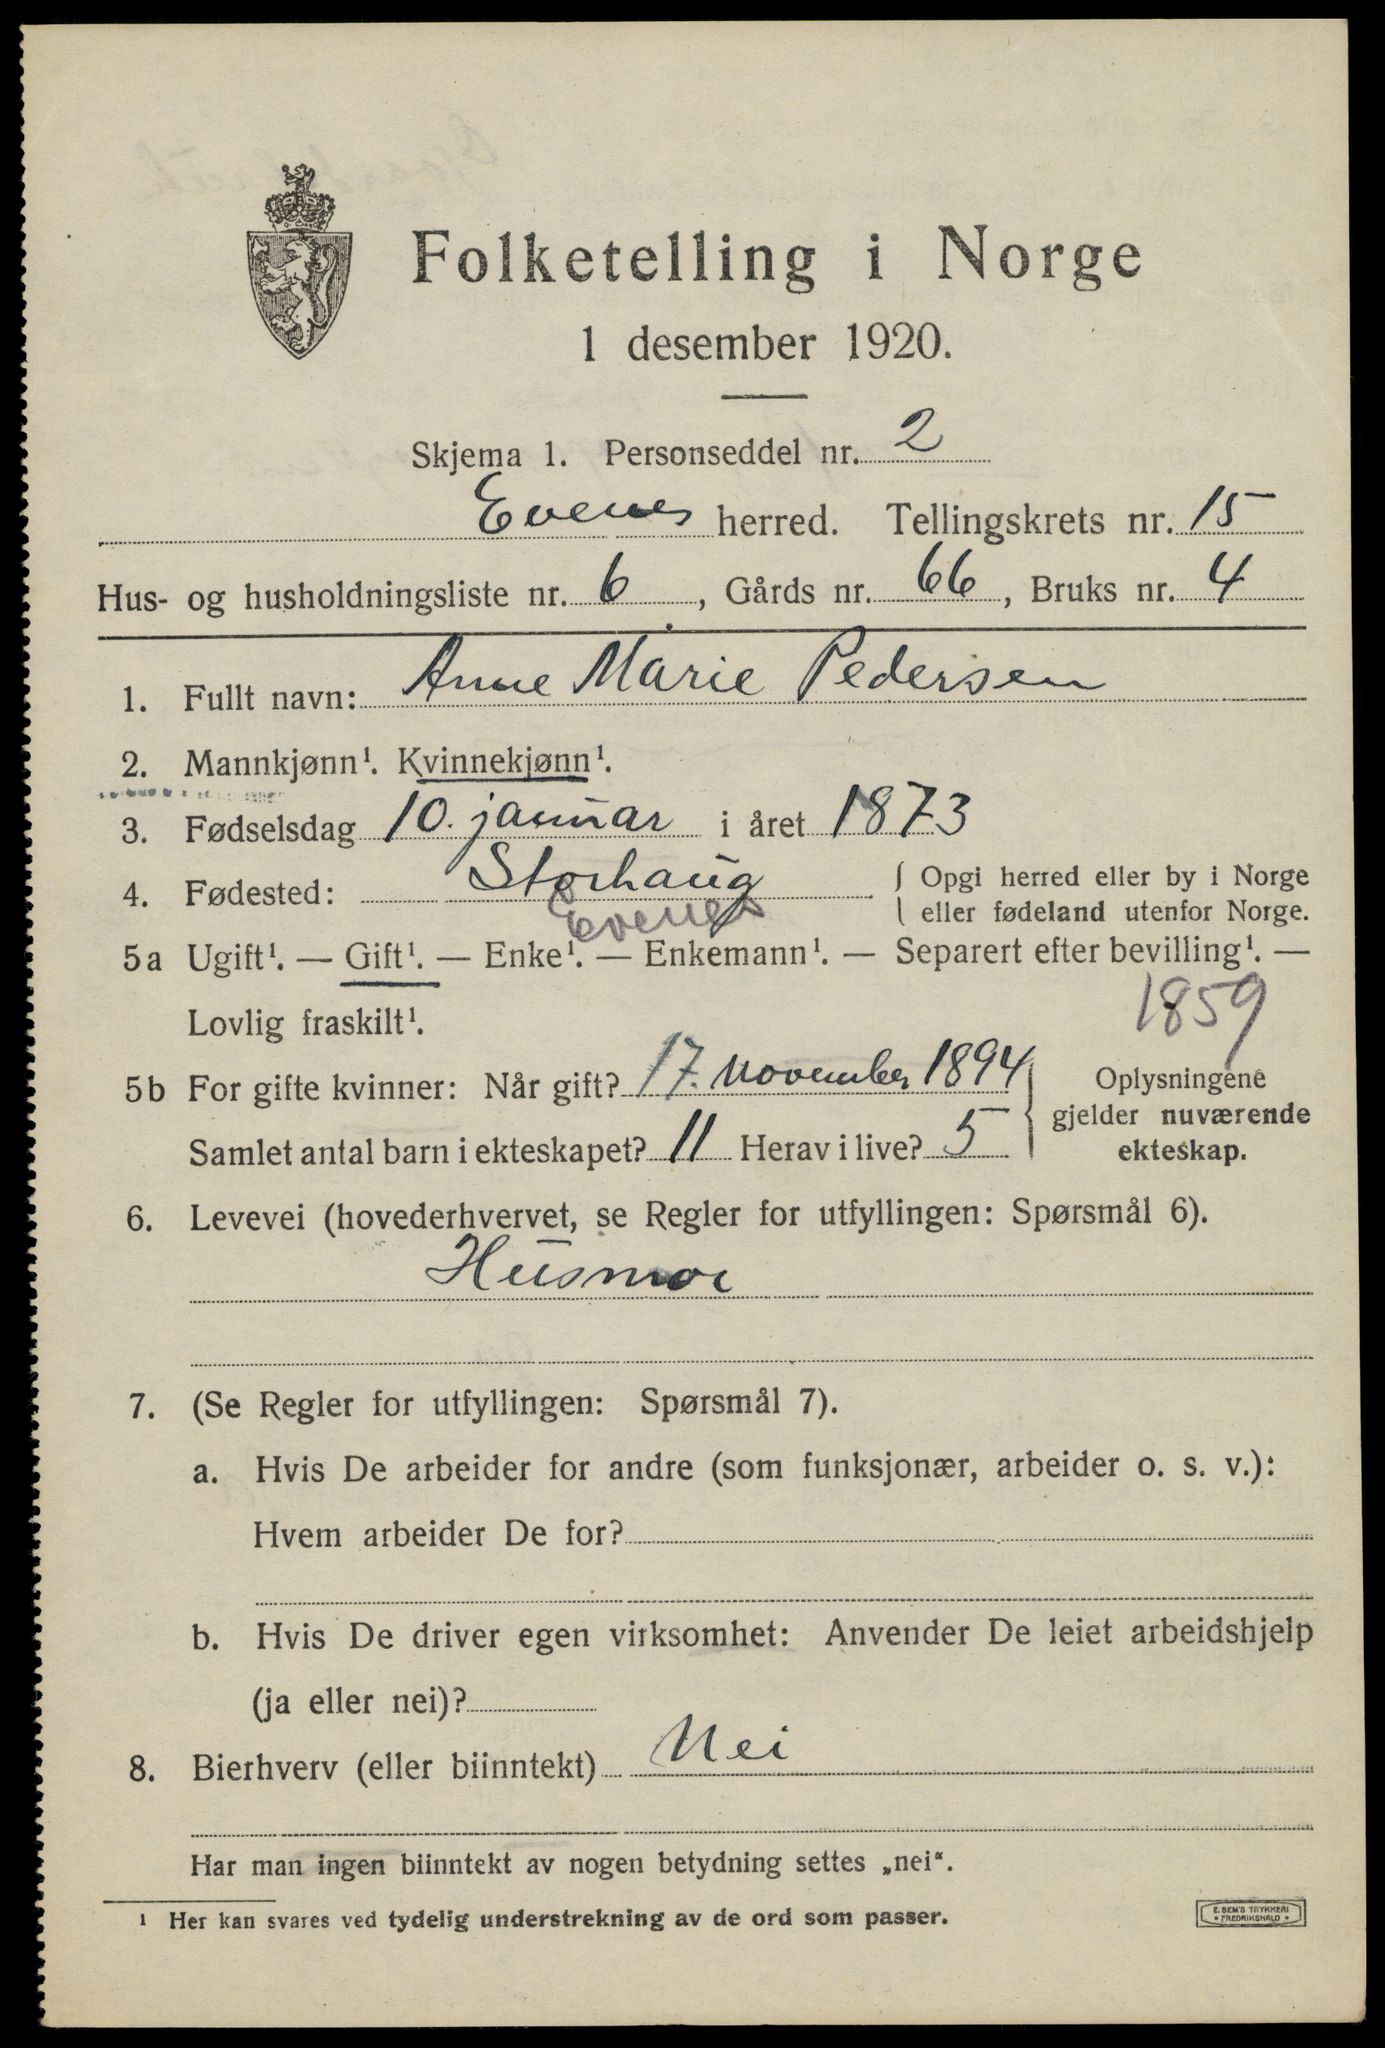 Folketelling i Norge
1 desember 1920.
Skjema 1. Personseddel nr. 2
Evenes herred. Tellingskrets nr. 15
Hus- og husholdningsliste nr. 6, Gårds nr. 66, Bruks nr. 4
1. Fullt navn: Anne Marie Pedersen
2. Mannkjønn¹. Kvinnekjønn¹.
3. Fødselsdag 10. januar i året 1873
4. Fødested: Storhaug { Opgi herred eller by i Norge
Evenes eller fødeland utenfor Norge.
5a Ugift¹. — Gift¹. — Enke¹. — Enkemann¹. — Separert efter bevilling¹. —
Lovlig fraskilt¹. 1859
5b For gifte kvinner: Når gift? 17. november 1894 } Oplysningene
gjelder nuværende
Samlet antal barn i ekteskapet? 11 Herav i live? 5 ekteskap.
6. Levevei (hovederhvervet, se Regler for utfyllingen: Spørsmål 6).
Husmor
7. (Se Regler for utfyllingen: Spørsmål 7).
a. Hvis De arbeider for andre (som funksjonær, arbeider o. s. v.):
Hvem arbeider De for?
b. Hvis De driver egen virksomhet: Anvender De leiet arbeidshjelp
(ja eller nei)?
8. Bierhverv (eller biinntekt) Nei
Har man ingen biinntekt av nogen betydning settes „nei“.
¹ Her kan svares ved tydelig understrekning av de ord som passer.
E. SEM'S TRYKKERI
• FREDRIKSHALD •